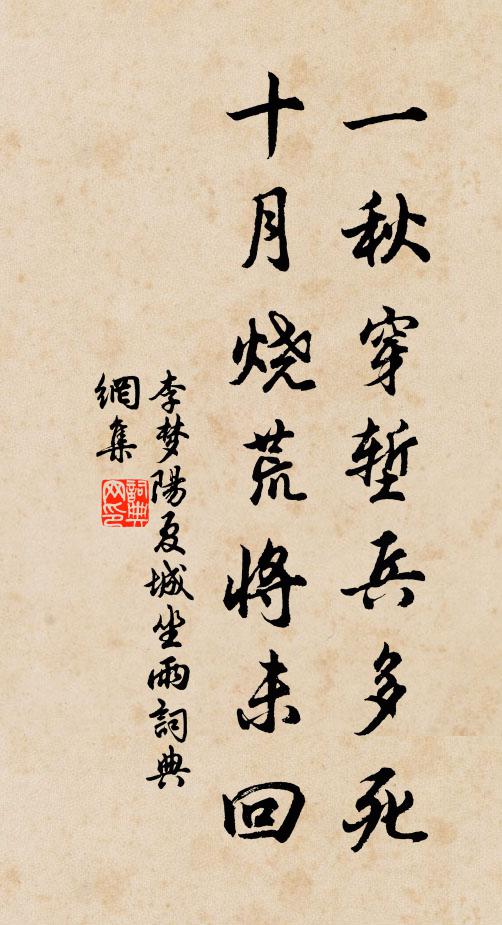 一秋穿塹兵多死
十月烧荒将未回
李梦陽夏城坐雨詞典
網集
詞典
网印